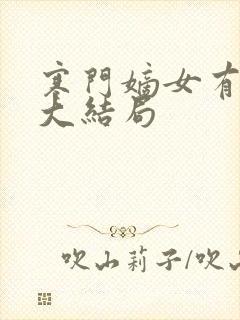 寒門嫡女有
大結局
吹山莉子/吹山